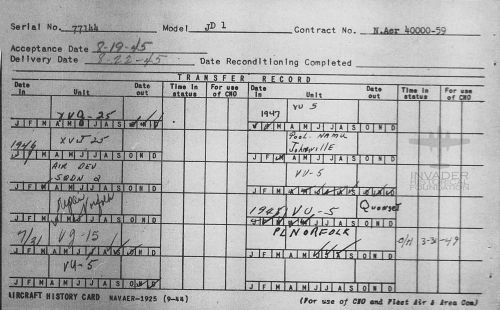 Serial No. 77144 Model JD 1 Contract No. N.Aer 40000-59
Acceptance Date 8-19-45
Delivery Date 8-22-45 Date Reconditioning Completed
TRANSFER RECORD
Date in Unit Date out Time in status For use of CNO Date in Unit Date out Time in status For use of CNO
XVJ-25 1947 VU 5
J F M A M J J A S O N D J F M A M J J A S O N D
1946 XVJ 25 Pool NAMU
Johnsville
J F M A M J J A S O N D J F M A M J J A S O N D
AIR DEV VU-5
SQDN 2
J F M A M J J A S O N D J F M A M J J A S O N D
Norfolk 1948 VU-5 Quonset
J F M A M J J A S O N D J F M A M J J A S O N D
7/31 VJ-15 PL NORFOLK 3-31-49
J F M A M J J A S O N D J F M A M J J A S O N D
VU-5
J F M A M J J A S O N D J F M A M J J A S O N D
AIRCRAFT HISTORY CARD NAVAER-1925 (9-44) (For use of CNO and Fleet Air & Area Com)
INVADER
FOUNDATION